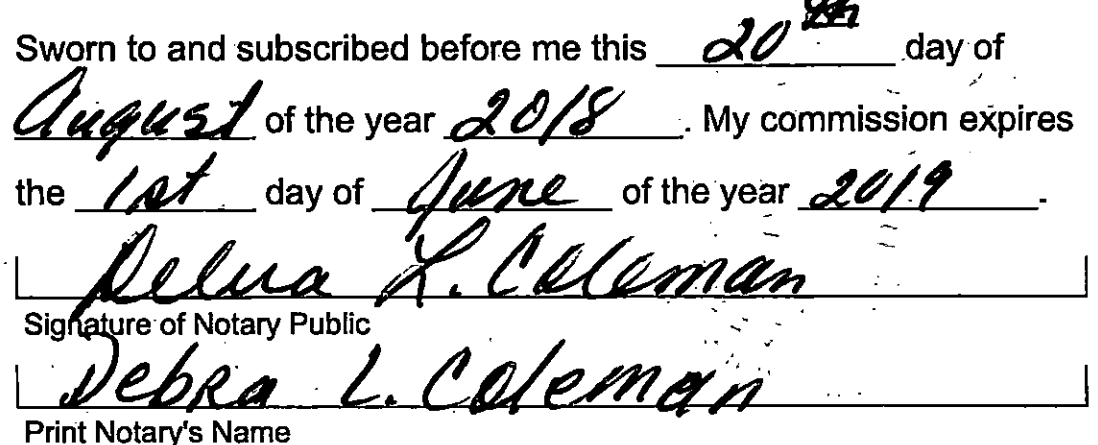 Sworn to and subscribed before me this 20th day of
August of the year 2018. My commission expires
the 1st day of June of the year 2019.
Debra L. Coleman
Signature of Notary Public
Debra L. Coleman
Print Notary's Name